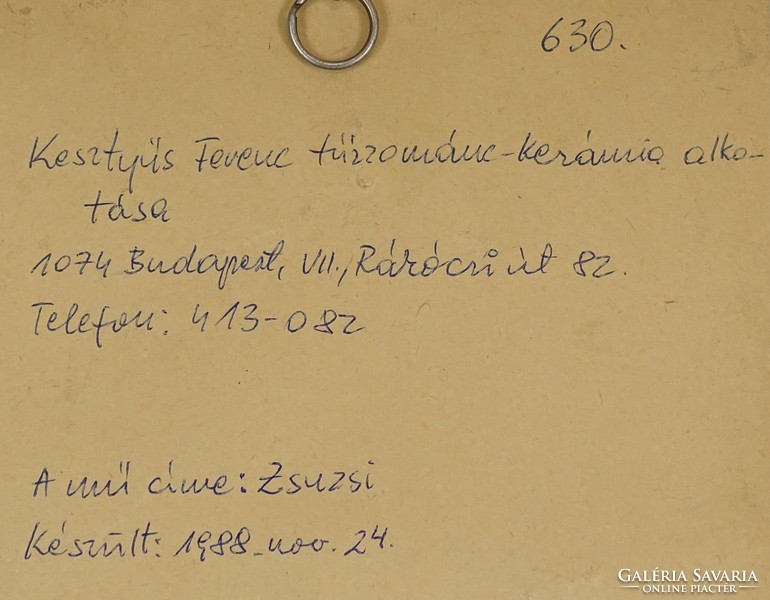 630.
Kesztyűs Ferenc tűzzománc-kerámia alko-
tása
1074 Budapest, VII., Rákóczi út 82.
Telefon: 413-082
A mű címe: Zsuzsi
Készült: 1988. nov. 24.
GALÉRIA SAVARIA
ONLINE PIACTÉR